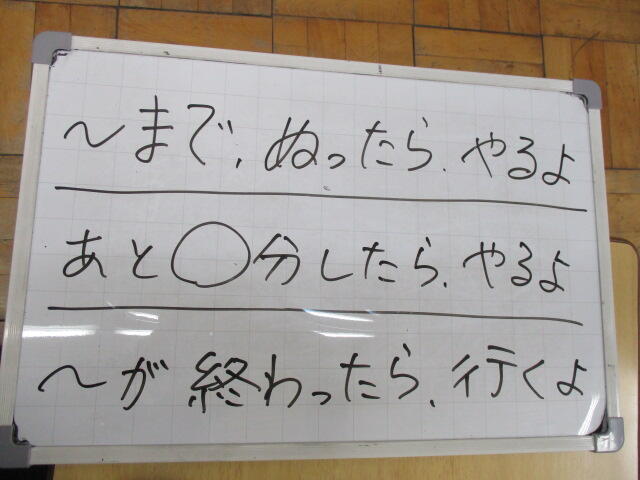 ～まで、ぬったら、やるよ
あと○分したら、やるよ
～が終わったら、行くよ